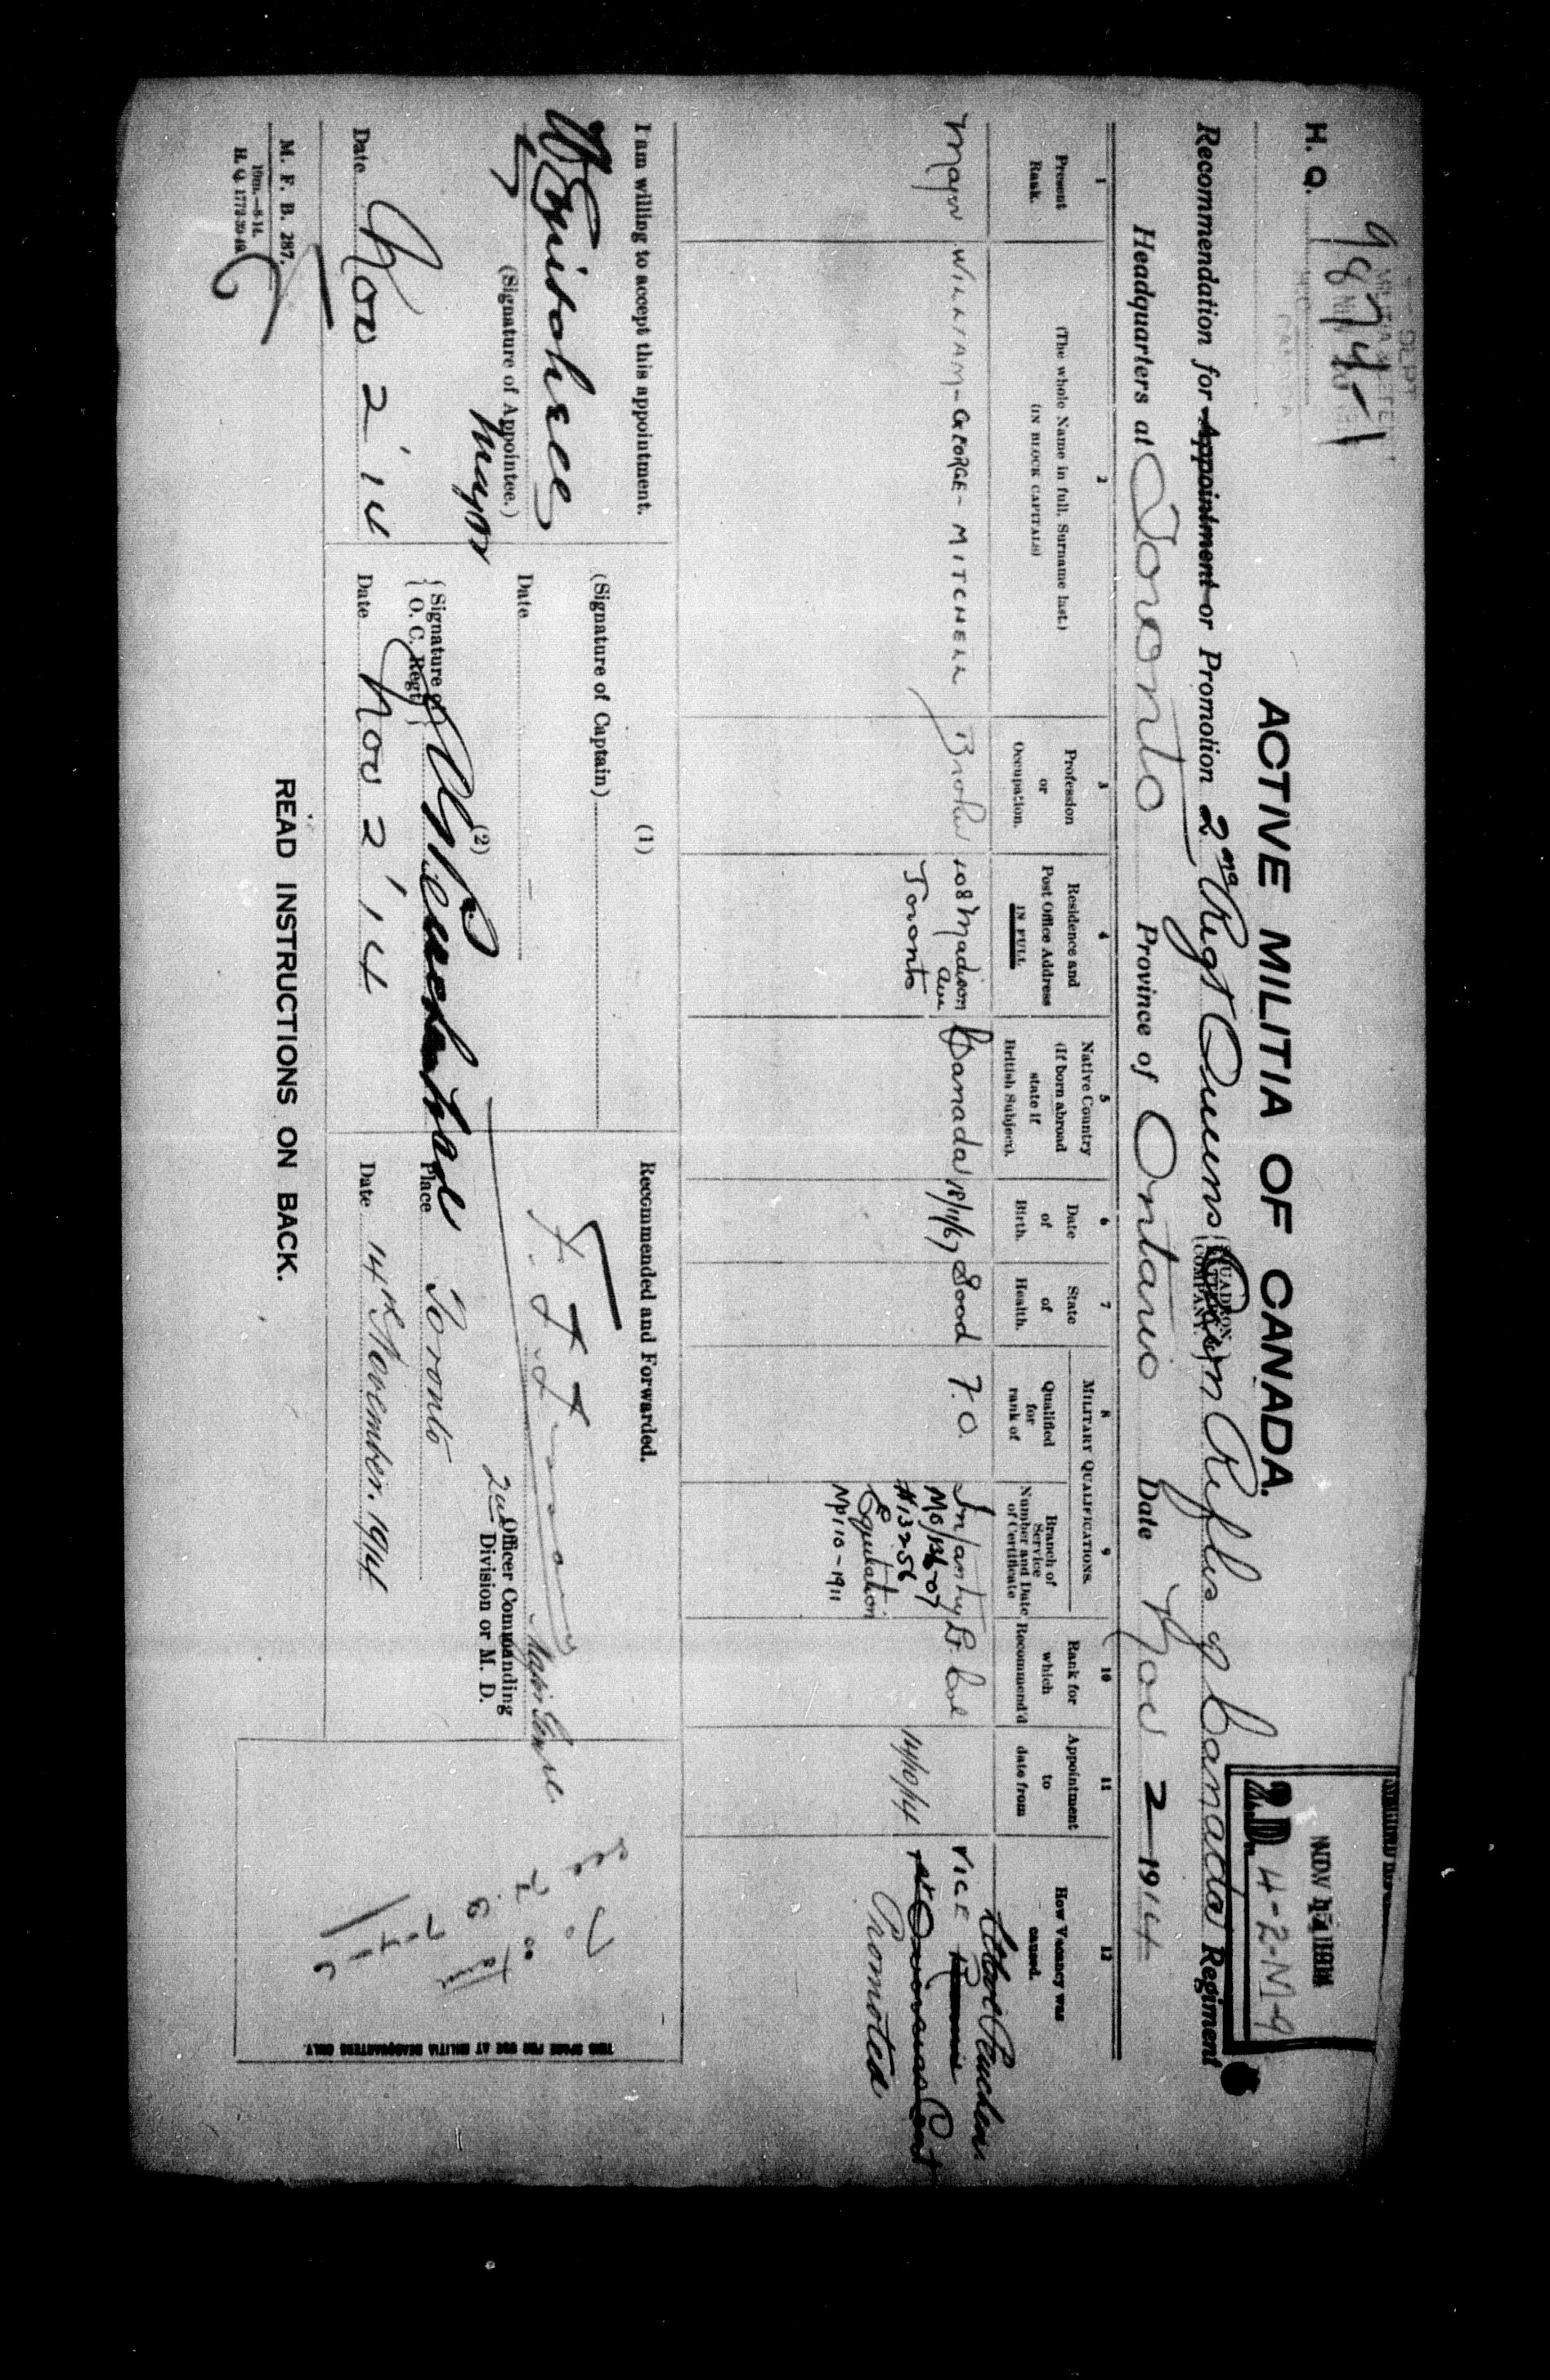 H. Q. 9874-1
ACTIVE MILITIA OF CANADA.
NOV 1914
2.D. 4-2-M-9
Recommendation for Appointment or Promotion 2nd Regt Queens Own Rifles of Canada Regiment
Headquarters at Toronto Province of Ontario Date Nov 2 1914
1
Present
Rank.
2
(The whole Name in full. Surname last.)
(IN BLOCK CAPITALS)
3
Profession
or
Occupation.
4
Residence and
Post Office Address
IN FULL
5
Native Country
(If born abroad
state if
British Subject).
6
Date
of
Birth.
7
State
of
Health.
MILITARY QUALIFICATIONS.
8
Qualified
for
rank of
9
Branch of
Service
Number and Date
of Certificate
10
Rank for
which
Recommend'd
11
Appointment
to
date from
12
How Vacancy was
caused.
Major
WILLIAM-GEORGE-MITCHELL
Broker
108 Madison
Ave
Toronto
Canada
18/11/67
Good
F.O.
Infantry
#13256
Equitation
1911
Lt Col
14/10/14
VICE
Promoted
I am willing to accept this appointment.
(Signature of Appointee.)
Major
Date Nov 2 '14
(1)
(Signature of Captain)
Date
(2)
Signature of
O. C. Regt.
Date Nov 2 '14
Recommended and Forwarded.
Officer Commanding
2nd Division or M. D.
Place Toronto
Date 14th November. 1914
THIS SPACE FOR USE AT MILITIA HEADQUARTERS ONLY.
M. F. B. 287.
10m.—8-14.
H. Q. 1772-39-40
READ INSTRUCTIONS ON BACK.